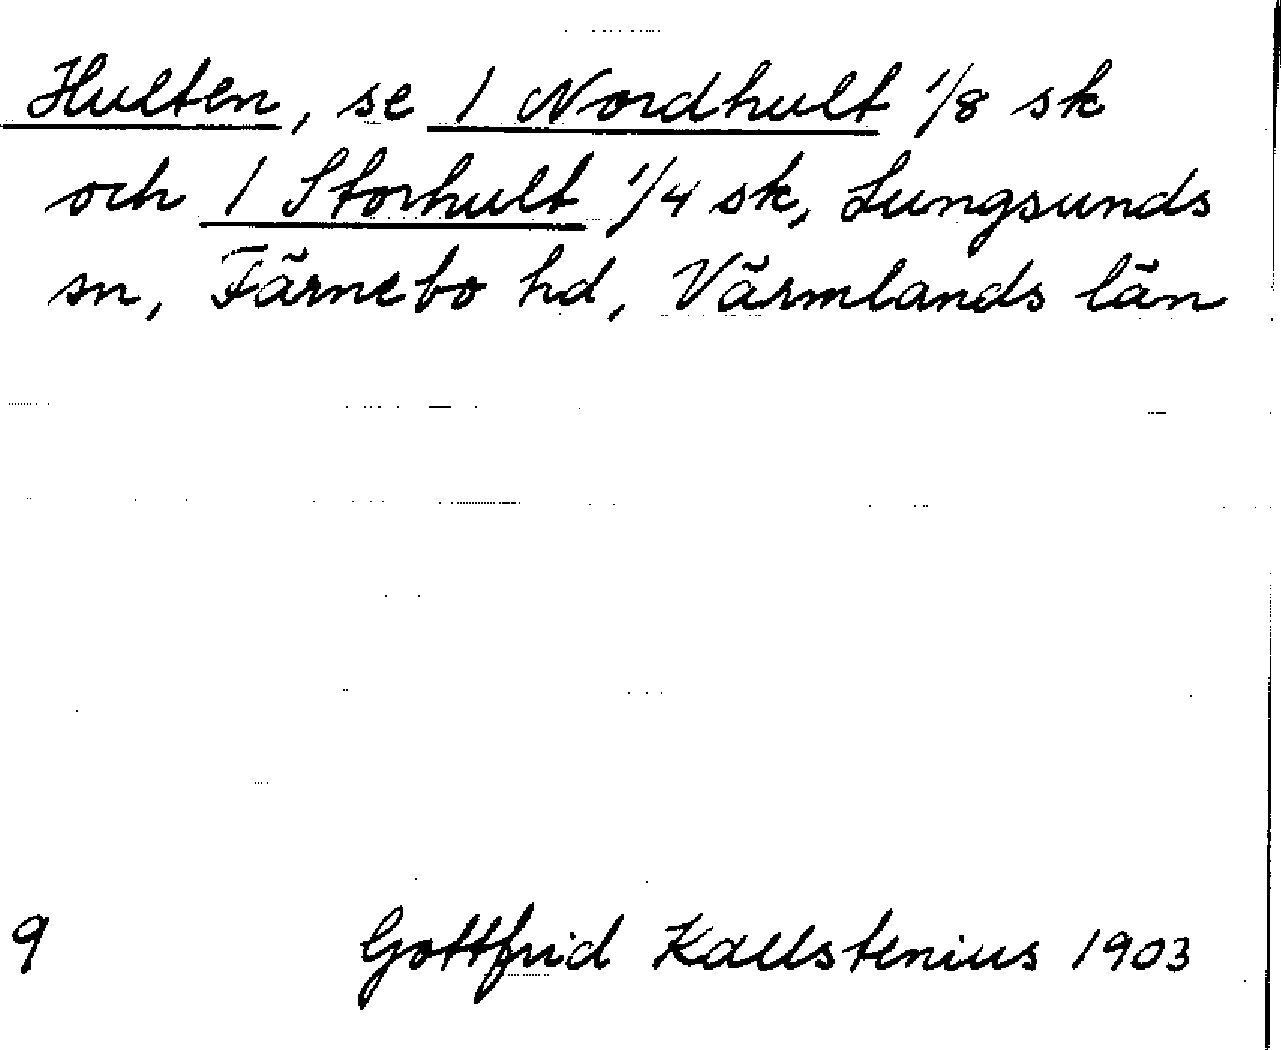 Hulten, se 1 Nordhult 1/8 sk
och 1 Storhult 1/4 sk, Lungsunds
sn, Färnebo hd, Värmlands län
9 Gottfrid Kallstenius 1903